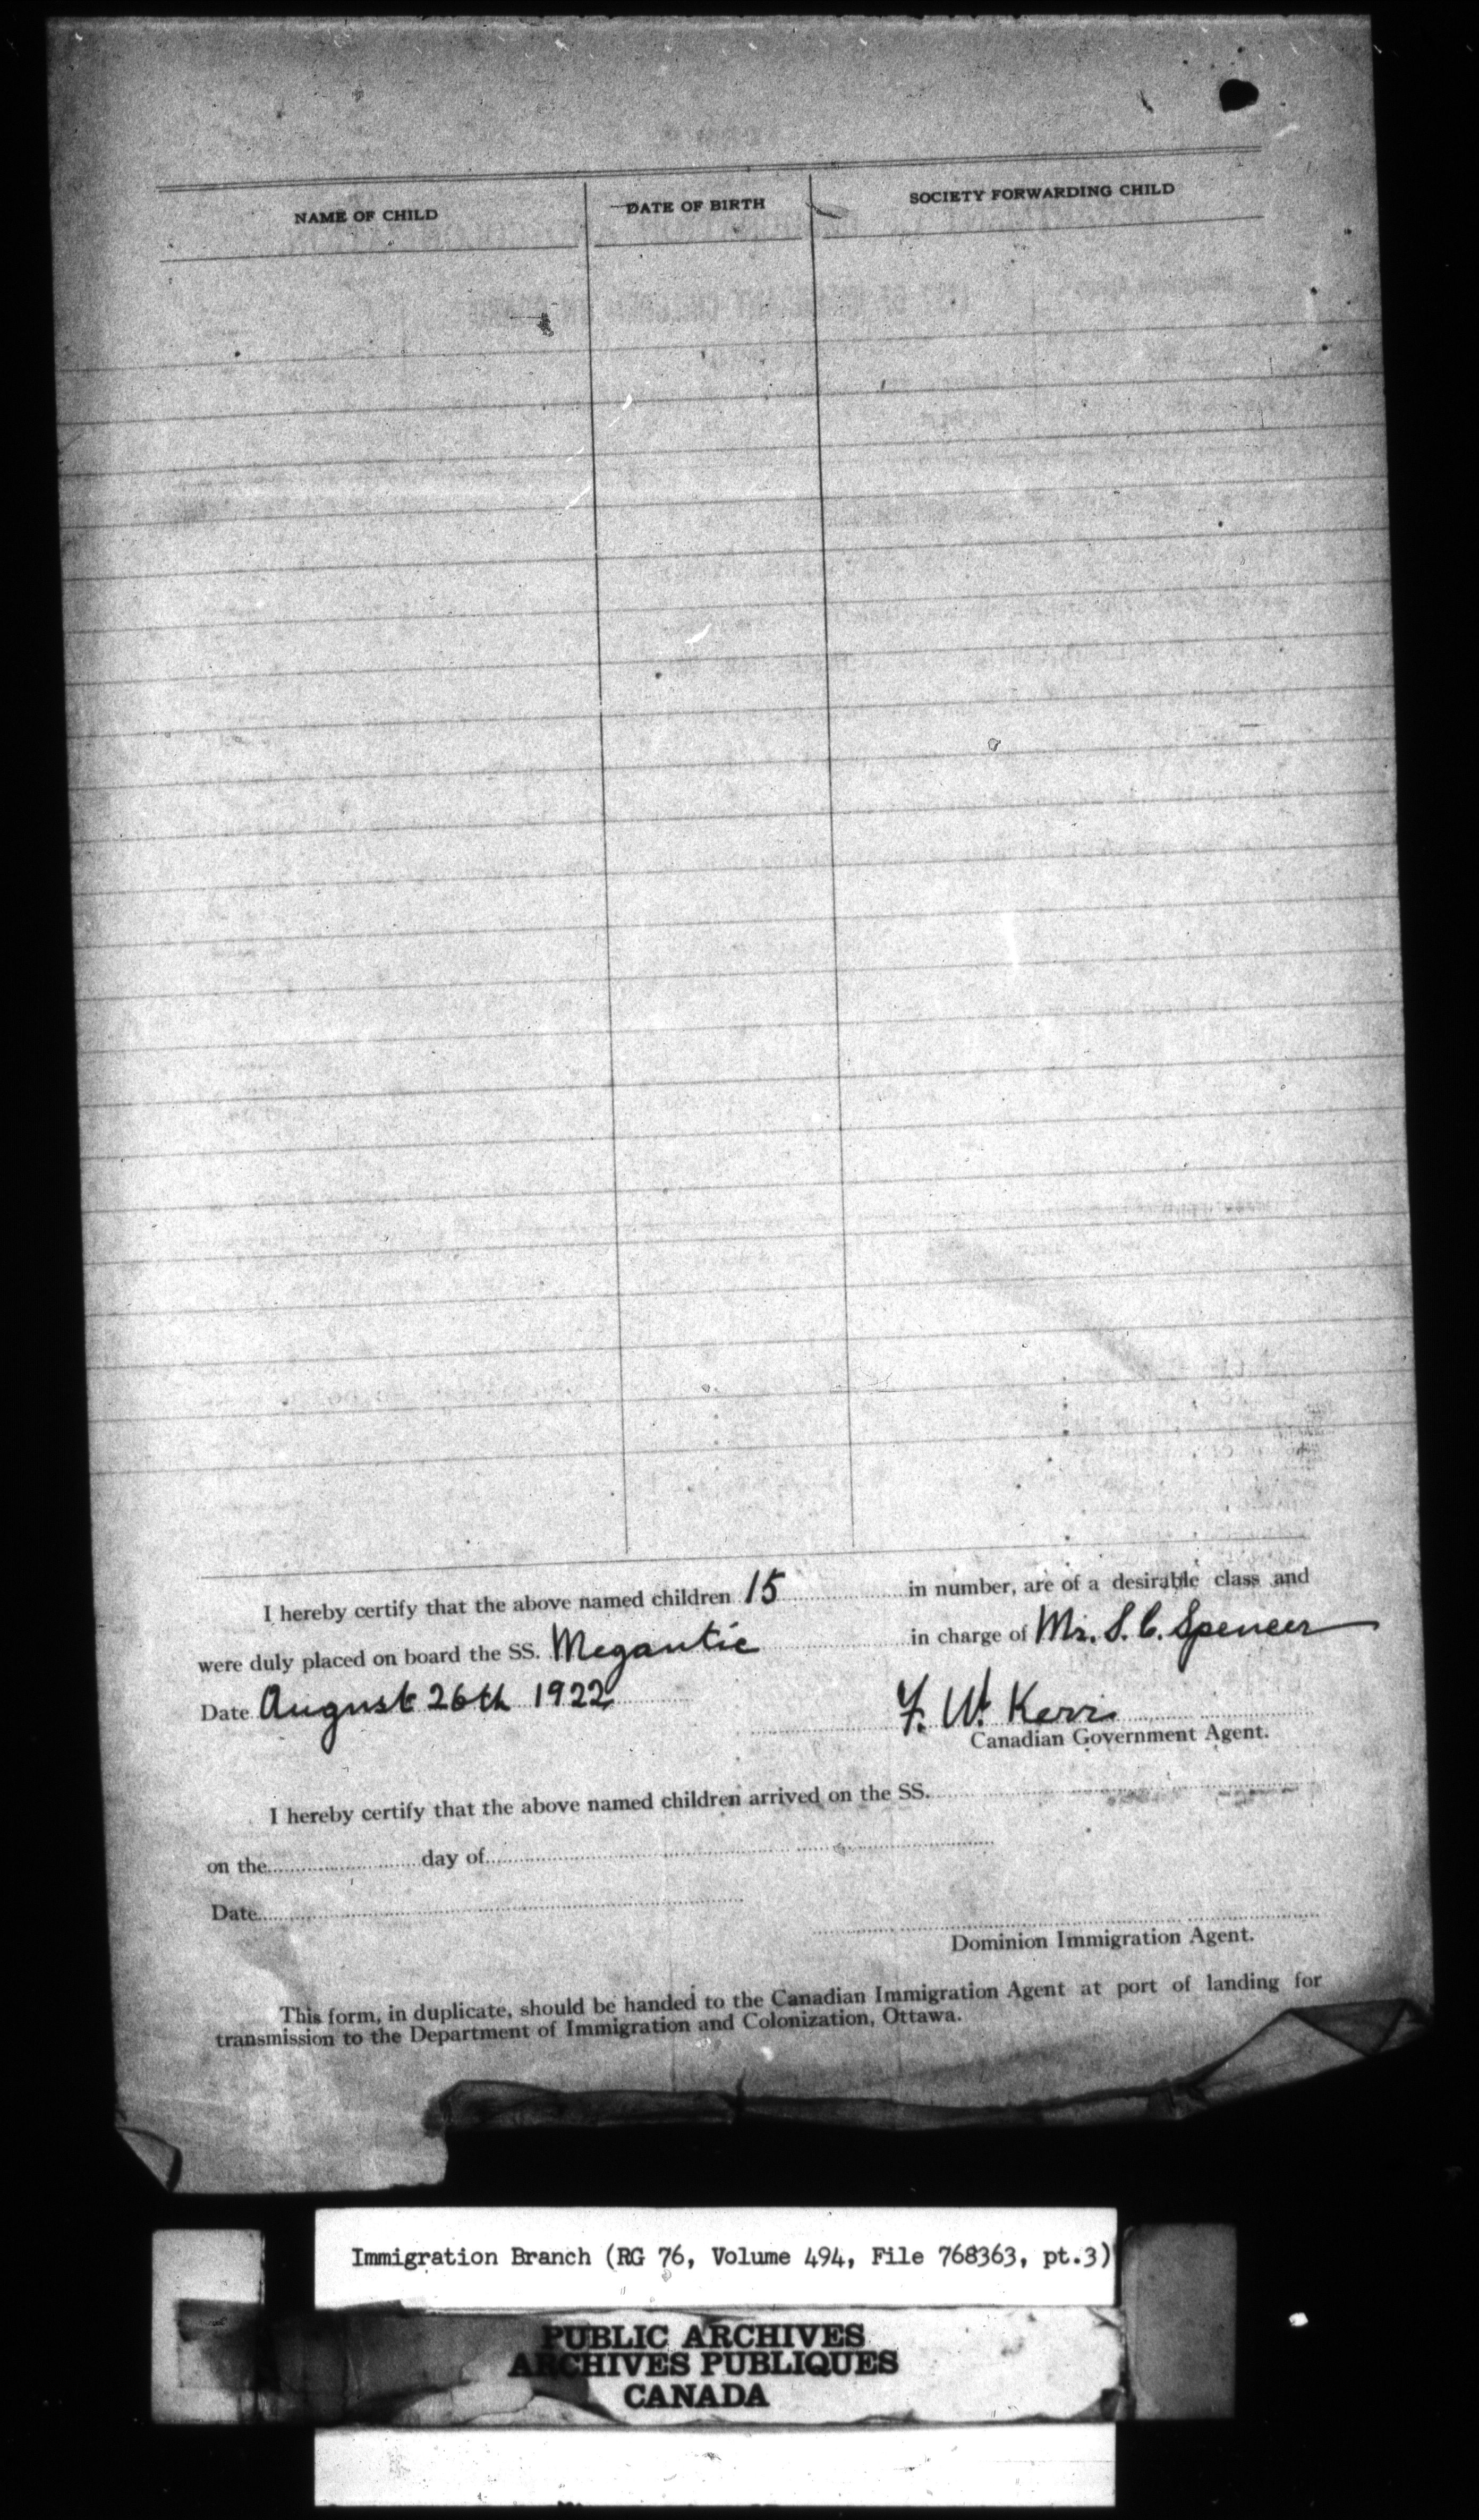 NAME OF CHILD DATE OF BIRTH SOCIETY FORWARDING CHILD
I hereby certify that the above named children 15 in number, are of a desirable class and
were duly placed on board the SS. Megantic in charge of Mr. S. C. Spencer
Date August 26th 1922
F. W. Kerr
Canadian Government Agent.
I hereby certify that the above named children arrived on the SS.
on the day of
Date
Dominion Immigration Agent.
This form, in duplicate, should be handed to the Canadian Immigration Agent at port of landing for
transmission to the Department of Immigration and Colonization, Ottawa.
Immigration Branch (RG 76, Volume 494, File 768363, pt.3)
PUBLIC ARCHIVES
ARCHIVES PUBLIQUES
CANADA